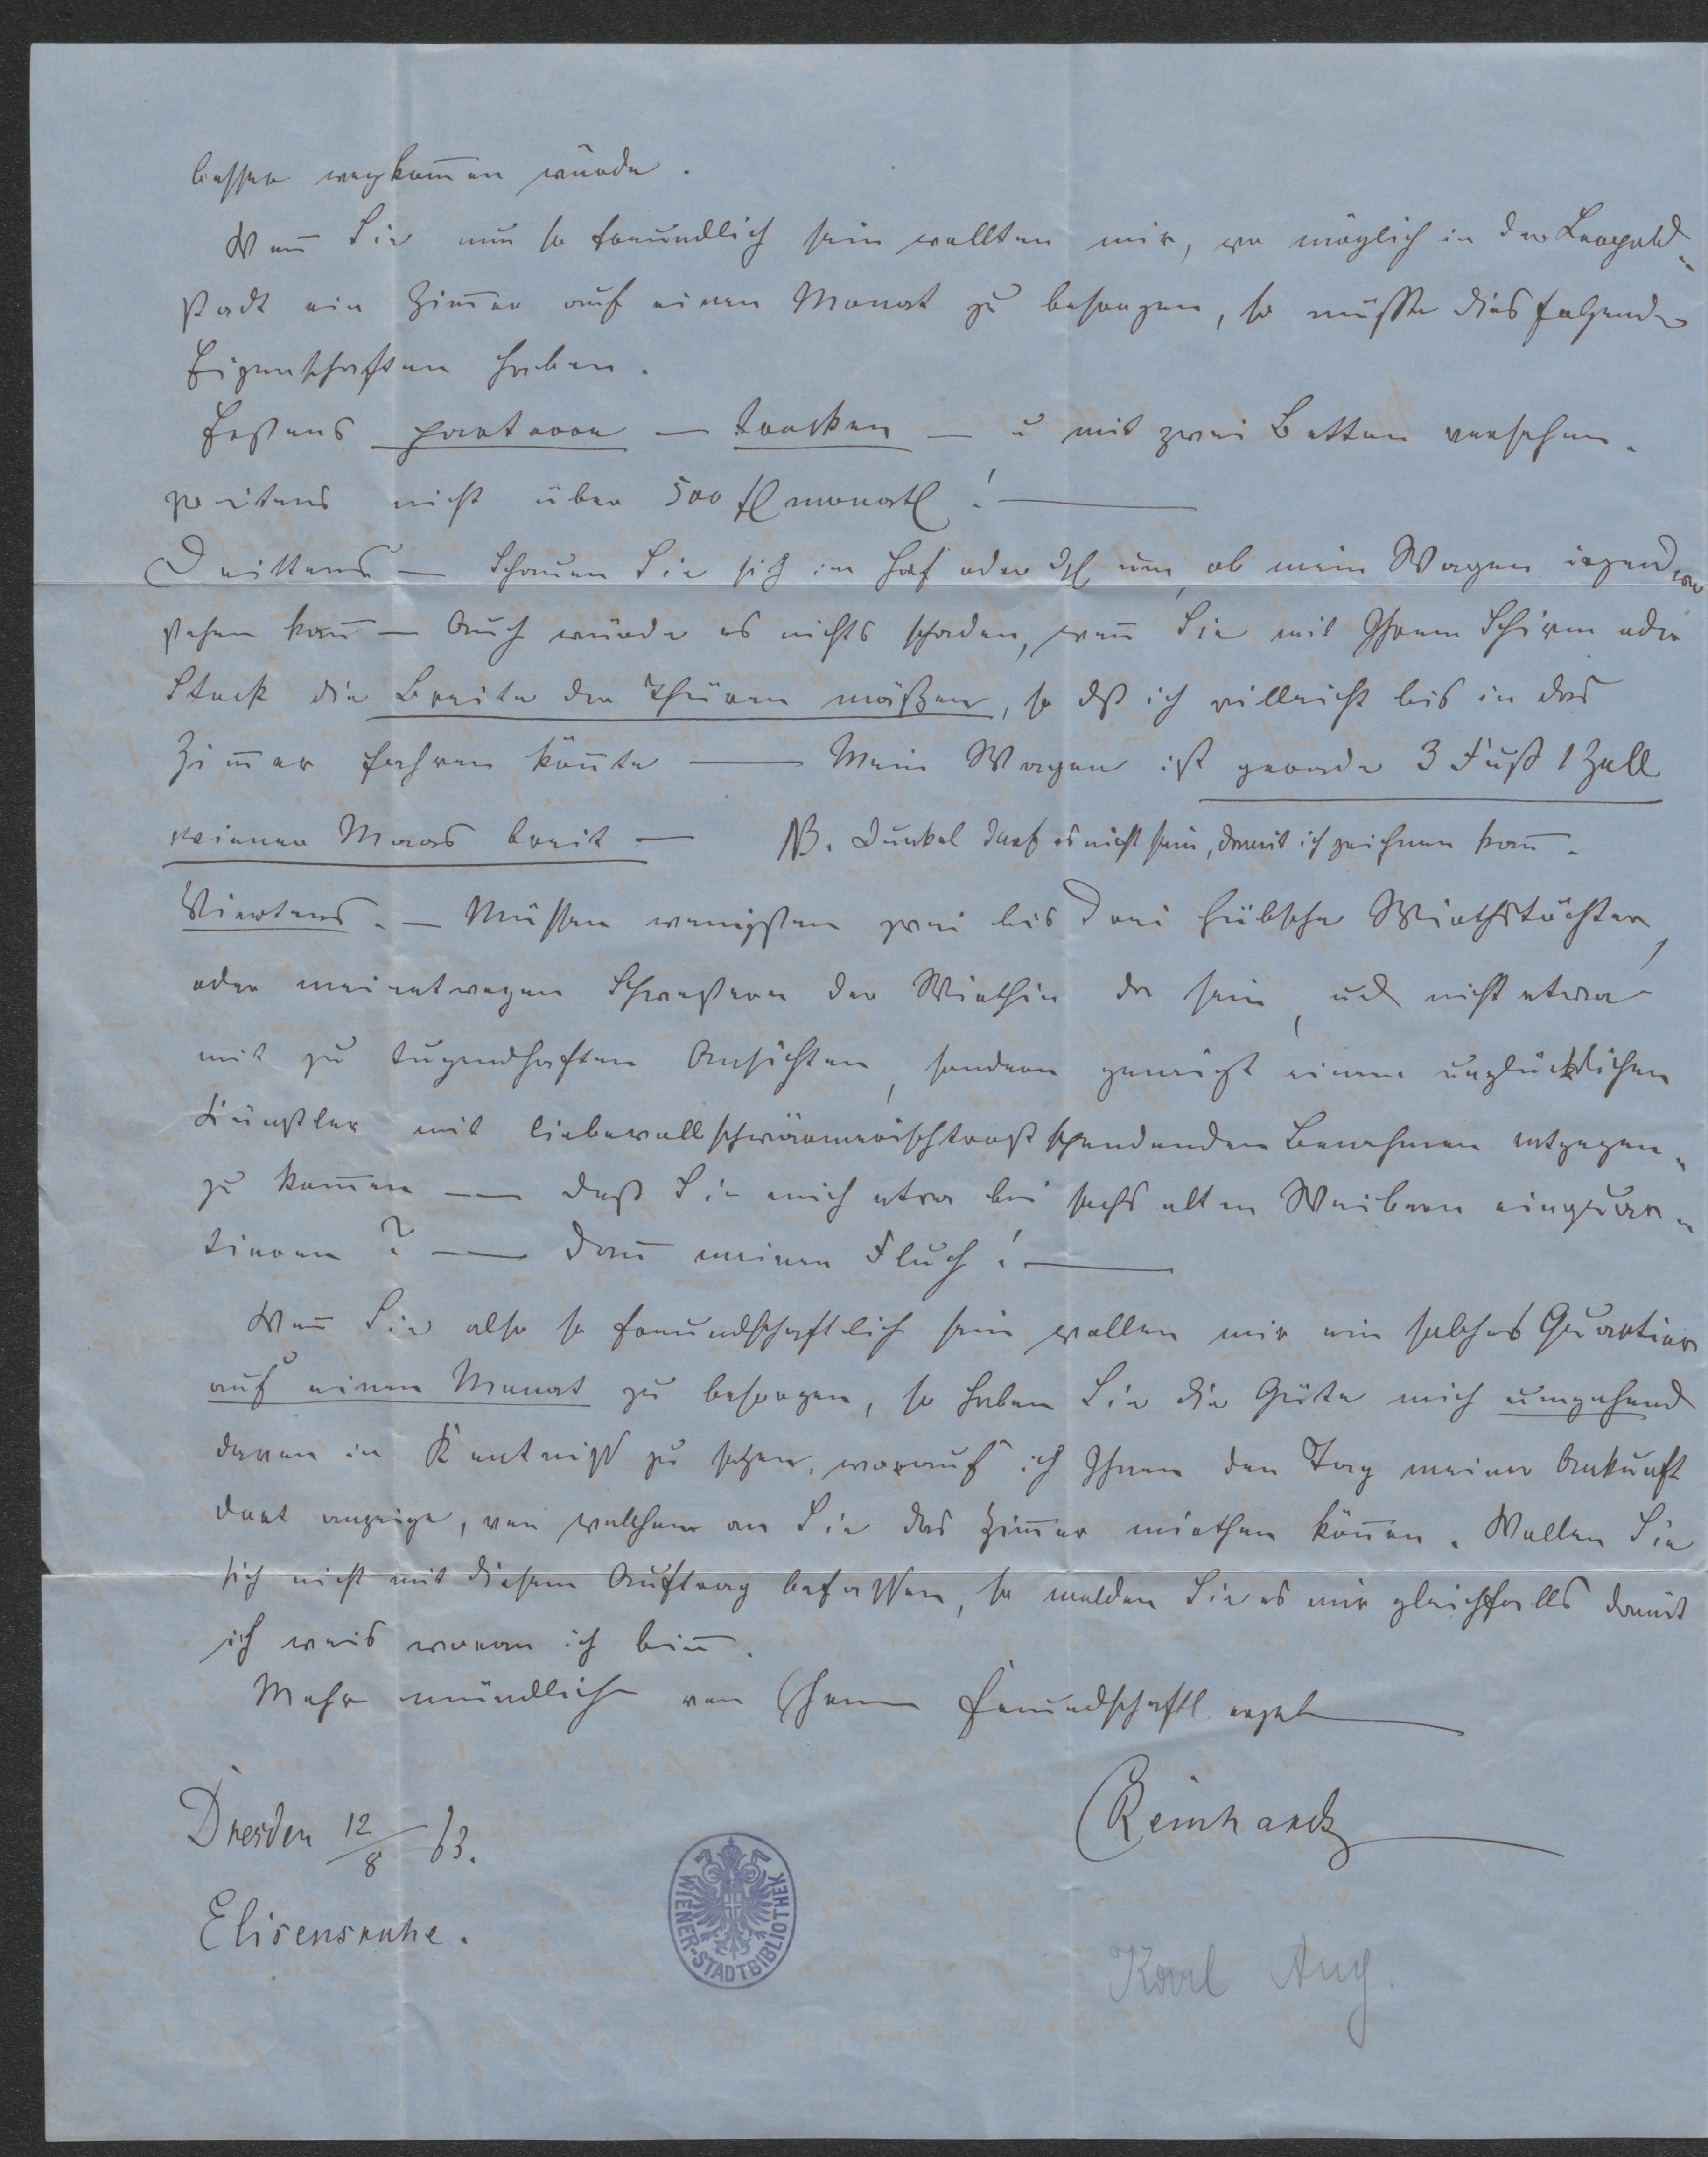 besser wegkom̅en würde.
Wen̅ Sie nun so freundlich sein wollten mir, wo möglich in der Leopold-
stadt ein Zim̅er auf einen Monat zu besorgen, so müsste dies folgende
Eigenschaften haben.
Erstens parterre — trocken — u mit zwei Betten versehen.
zweitens nicht über 500 fl monatl! —
Drittens — Schauen Sie sich im Hof oder dgl um, ob mein Wagen irgendwo
stehen kan̅ — Auch würde es nichts schaden, wen̅ Sie mit Ihrem Schirm oder
Stock die Breite der Thüren mäßen, so dß ich villeicht bis in das
Zim̅er fahren kön̅te — Mein Wagen ist gerade 3 Fuß 1 Zoll
wiener Maas breit — NB. Dunkel darf es nicht sein, damit ich zeichnen kan̅.
Viertens. — Müssen wenigsten zwei bis drei hübsche Wirthstöchter,
oder meinetwegen Schwestern der Wirthin da sein, und nicht etwa
mit zu tugendhaften Ansichten, sondern geneigt einem unglücklichen
Künstler mit liebevollschwärmerischtrostspendenden Benehmen entgegen-
zu kom̅en — daß Sie mich etwa bei sechs alten Weibern einquar-
tieren? — dan̅ meinen Fluch! —
Wen̅ Sie also so freundschaftlich sein wollen mir ein solches Quartier
auf einen Monat zu besorgen, so haben Sie die Güte mich umgehend
davon in Kentniss zu setzen, worauf ich Ihnen den Tag meiner Ankunft
dort anzeige, von welchem an Sie das Zim̅er miethen kön̅en. Wollen Sie
sich nicht mit diesem Auftrag befassen, so melden Sie es mir gleichfalls damit
ich weis woran ich bin̅.
Mehr mündlich von Ihrem freundschaftl ergeb
Reinhardt
Dresden 12/8 63.
Elisensruhe.
WIENER-STADTBIBLIOTHEK
Karl Aug.